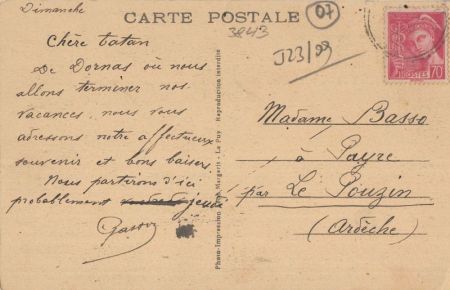 Dimanche
CARTE POSTALE
07
3843
J23/99
Chère tatan
De Dornas où nous
allons terminer nos
vacances, nous vous
adressons notre affectueux
souvenir et bons baisers
Nous partirons d'ici
probablement jeudi
Photo-Impression Margerit - Le Puy Reproduction interdite
POSTES 70
Madame Basso
à Payre
par Le Pouzin
(Ardèche)